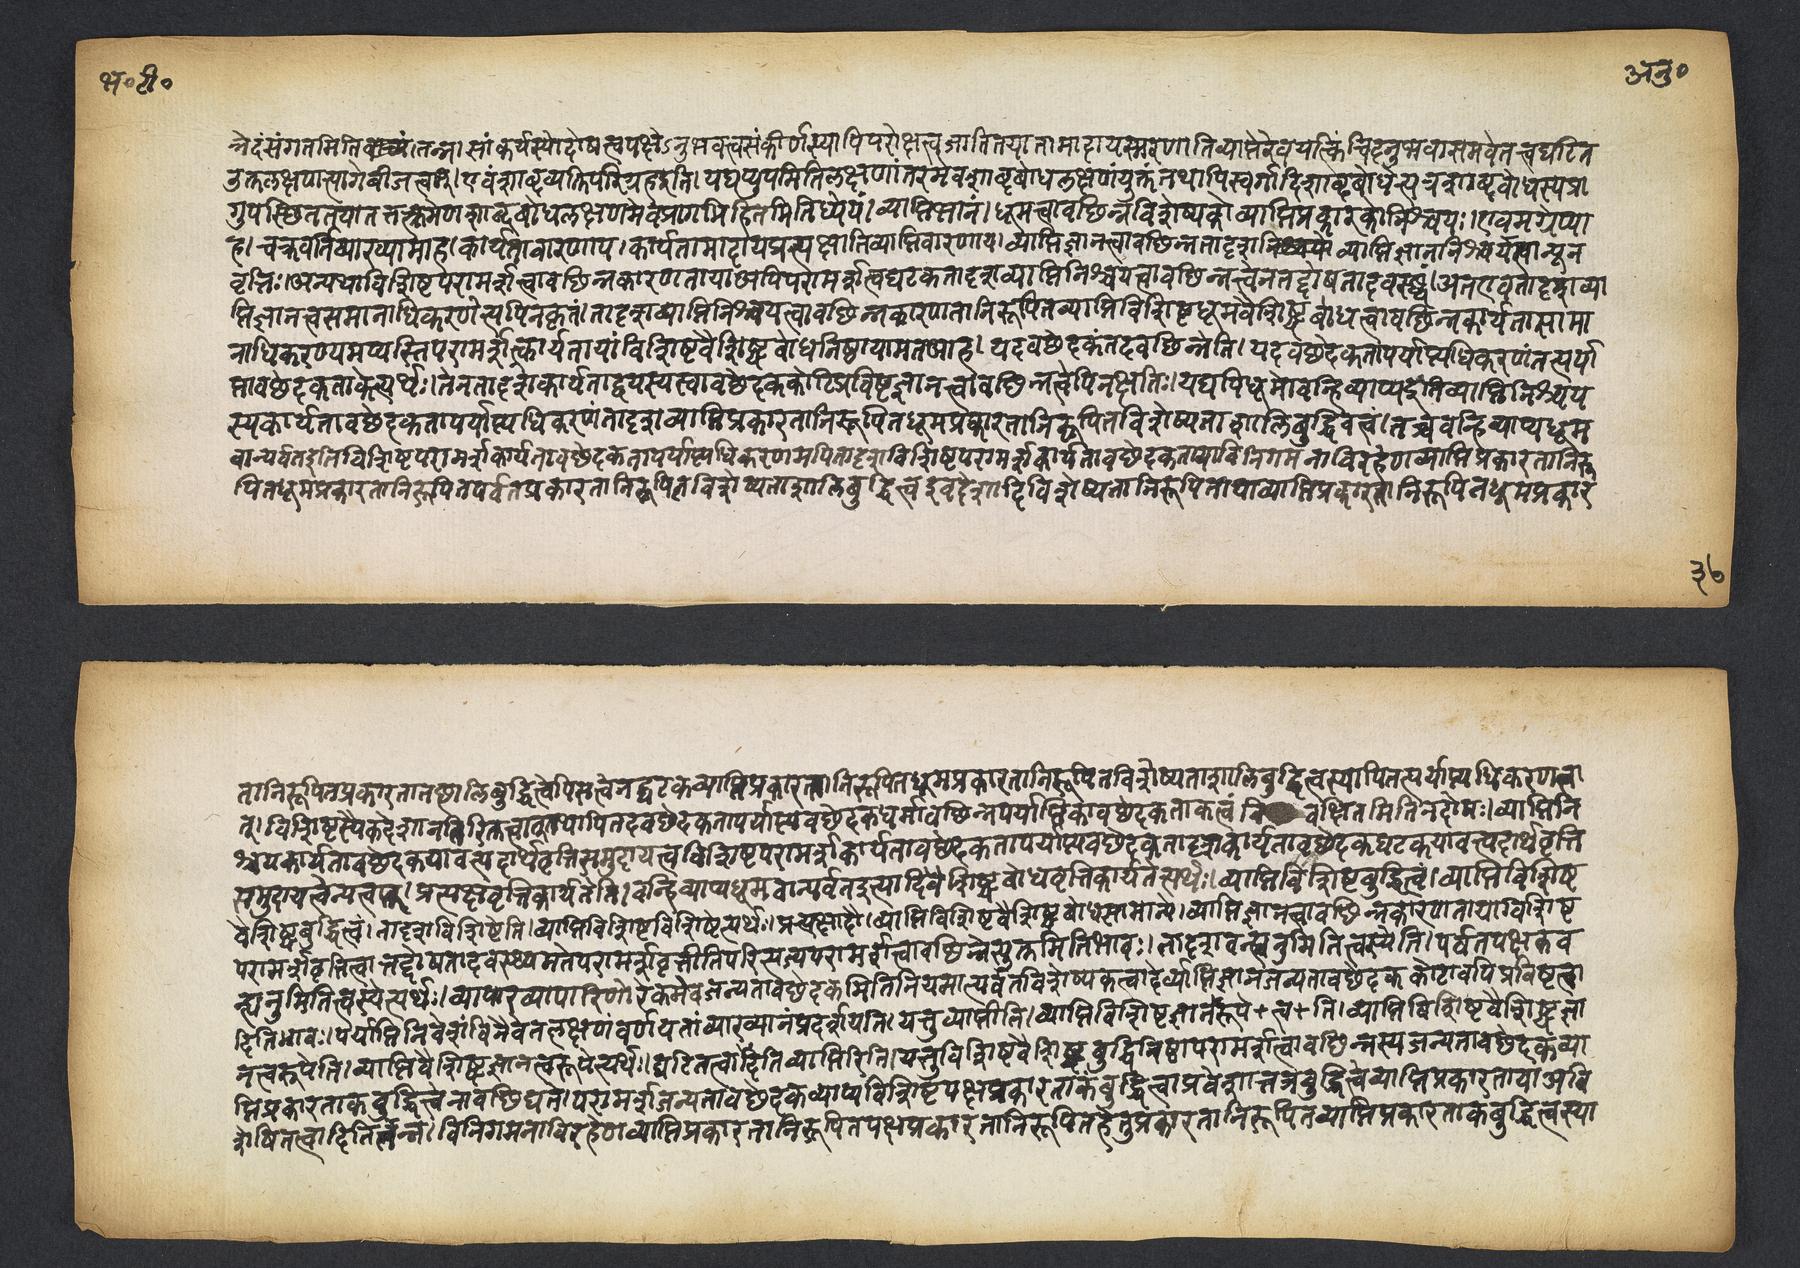 भ॰टी॰
अनु॰
न्नेदंसंगतमितिवाच्यं।तन्न।सांकर्यस्यादोषत्वपक्षेऽनुभवत्वसंकीर्णस्यापिपरोक्षत्वजातितयातामादायस्मरणातिव्याप्तेरेवयत्किंचिदनुभवासमवेतत्वघटित
नुक्तलक्षणात्यागेबीजत्वात्।एवंशाब्दव्यक्तिपरिग्रहइति।यद्यप्युपमितिलक्षणांतरमेवशाब्दबोधलक्षणंयुक्तंतथापिस्वर्गादिशाब्दबोधेत्यत्रशाब्दबोधस्यप्रा
गुपस्थिततयातत्क्रमेणशाब्दबोधलक्षणमेवप्रागभिहितमितिध्येयं।व्याप्तिज्ञानं।धूमत्वावछिन्नविशेष्यकोव्याप्तिप्रकारकोनिश्चयः।एवमग्रेप्या
ह।चक्रवर्तिव्याख्यामाह।कार्यतावारणाय।कार्यतामादायप्रत्यक्षातिव्याप्तिवारणाय।व्याप्तिज्ञानत्वावछिन्नतादृशनिश्चय व्याप्तिज्ञाननिश्चयत्वान्यून
वृत्तिः।अन्यथाविशिष्टपरामर्शत्वावछिन्नकारणतायाअपिपरामर्शत्वघटकतादृशव्याप्तिनिश्चयत्वावछिन्नत्वेनतद्दोषतादवस्थ्यं।अतएवतादृशव्या
प्तिज्ञानत्वसमानाधिकरणेत्यपिनकृतं।तादृशव्याप्तिनिश्चयत्वावछिन्नकारणतानिरूपितव्याप्तिविशिष्टधूमवैशिष्ट्यबोधत्वावछिन्नकार्यतासामा
नाधिकरण्यमप्यस्तिपरामर्शत्कार्यतायांविशिष्टवैशिष्ट्यबोधनिष्ठायामतआह।यदवछेदकंतदवछिन्नेति।यदवछेदकतापर्याप्त्यधिकरणंतत्पर्या
प्तावछेदकताकेत्यर्थः।तेनतादृशकार्यताद्वयस्यस्वावछेदककोटिप्रविष्टज्ञानत्वावछिन्नत्वेपिनक्षतिः।यद्यपिधूमोवन्हिव्याप्यइतिव्याप्तिनिश्चय
स्यकार्यतावछेदकतापर्याप्त्यधिकरणंतादृशव्याप्तिप्रकारतानिरूपितधूमप्रकारतानिरूपितविशेष्यताशालिबुद्धित्वं।तच्चवन्हिव्याप्यधूम
वान्पर्वतइतिविशिष्टपरामर्शकार्यतावछेदकतापर्याप्त्यधिकरणमपितादृशविशिष्टपरामर्शकार्यतावछेदकतायांविनिगमनाविरहेणव्याप्तिप्रकारतानिरू
पितधूमप्रकारतानिरूपितपर्वतप्रकारतानिरूपितविशेष्यताशालिबुद्धित्वइवदेशादिविशेष्यतानिरूपितायाव्याप्तिप्रकारतानिरूपितधूमप्रकार
३७
तानिरूपितप्रकारतातछालिबुद्धित्वेपिसत्वेनद्घटकव्याप्तिप्रकारतानिरूपितधूमप्रकारतानिरूपितविशेष्यताशालिबुद्धित्वस्यापितत्पर्याप्त्यधिकरणत्वा
त्।विशिष्टस्यैकदेशानतिरिक्तत्वात्तथापितदवछेदकतापर्याप्त्यवछेदकधर्मावछिन्नपर्याप्तिकावछेदकताकत्वंवि वक्षितमितिनदोषः।व्याप्तिनि
श्चयकार्यतावछेदकयावत्पदार्थवृत्तिसमुदायत्वविशिष्टपरामर्शकार्यतावछेदकतापर्याप्त्यवछेदकतादृशकार्यतावछेदकघटकयावत्पदार्थवृत्ति
समुदायत्वेन्यत्वात्।प्रत्यक्षवृत्तिकार्यतेति।वन्हिव्याप्यधूमवान्पर्वतइत्यादिवैशिष्ट्यबोधवृत्तिकार्यतेत्यर्थः।व्याप्तिविशिष्टबुद्धित्वं।व्याप्तिविशिष्ट
वैशिष्ट्यबुद्धित्वं।तादृशविशिष्टेति।व्याप्तिविशिष्टविशिष्टेत्यर्थः।प्रत्यक्षादौ।व्याप्तिविशिष्टवैशिष्ट्यबोधसामान्ये।व्याप्तिज्ञानत्वावछिन्नकारणतायाविशिष्ट
परामर्शवृत्तित्वात्तद्दोषतादवस्थ्यमतेपरामर्शवृत्तीतिपरित्यज्यपरामर्शत्वावछिन्नेत्युक्तमितिभावः।तादृशवन्ह्यनुमितित्वस्येति।पर्वतपक्षकव
न्ह्यनुमितित्वस्येत्यर्थः।व्यापारव्यापारिणोरेकमेवजन्यतावछेदकमितिनियमात्पर्वतविशेष्यकत्वादेर्व्याप्तिज्ञानजन्यतावछेदककोटावपिप्रविष्टत्वा
दितिभावः।पर्याप्तिनिवेशंविनैवतल्लक्षणंवर्णयतांव्याख्यानंप्रदर्शयति।यत्तुव्याप्तीति।व्याप्तिविशिष्टज्ञानरूपे+त्व+ति।व्याप्तिविशिष्टवैशिष्ट्यज्ञा
नत्वरूपेति।व्याप्तिवैशिष्ट्यज्ञानत्वरूपेत्यर्थः।घटितत्वादितिव्याप्तिरिति।यत्तुविशिष्टवैशिष्ट्यबुद्धिनिष्ठापरामर्शत्वावछिन्नस्यजन्यतावछेदकंव्या
प्तिप्रकारताकबुद्धित्वंनावछिद्यते।परामर्शजन्यतावछेदकेव्याप्यविशिष्टपक्षप्रकारताकबुद्धित्वाप्रवेशात्तत्रबुद्धित्वेव्याप्तिप्रकारतायाअवि
शेषितत्वादितितन्न।विनिगमनाविरहेणव्याप्तिप्रकारतानिरूपितपक्षप्रकारतानिरूपितहेतुप्रकारतानिरूपितव्याप्तिप्रकारताकबुद्धित्वस्या